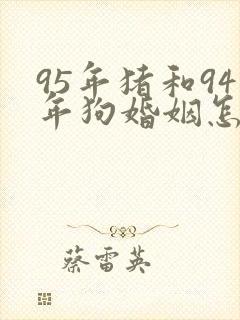 95年猪和94
年狗婚姻怎
蔡雷英